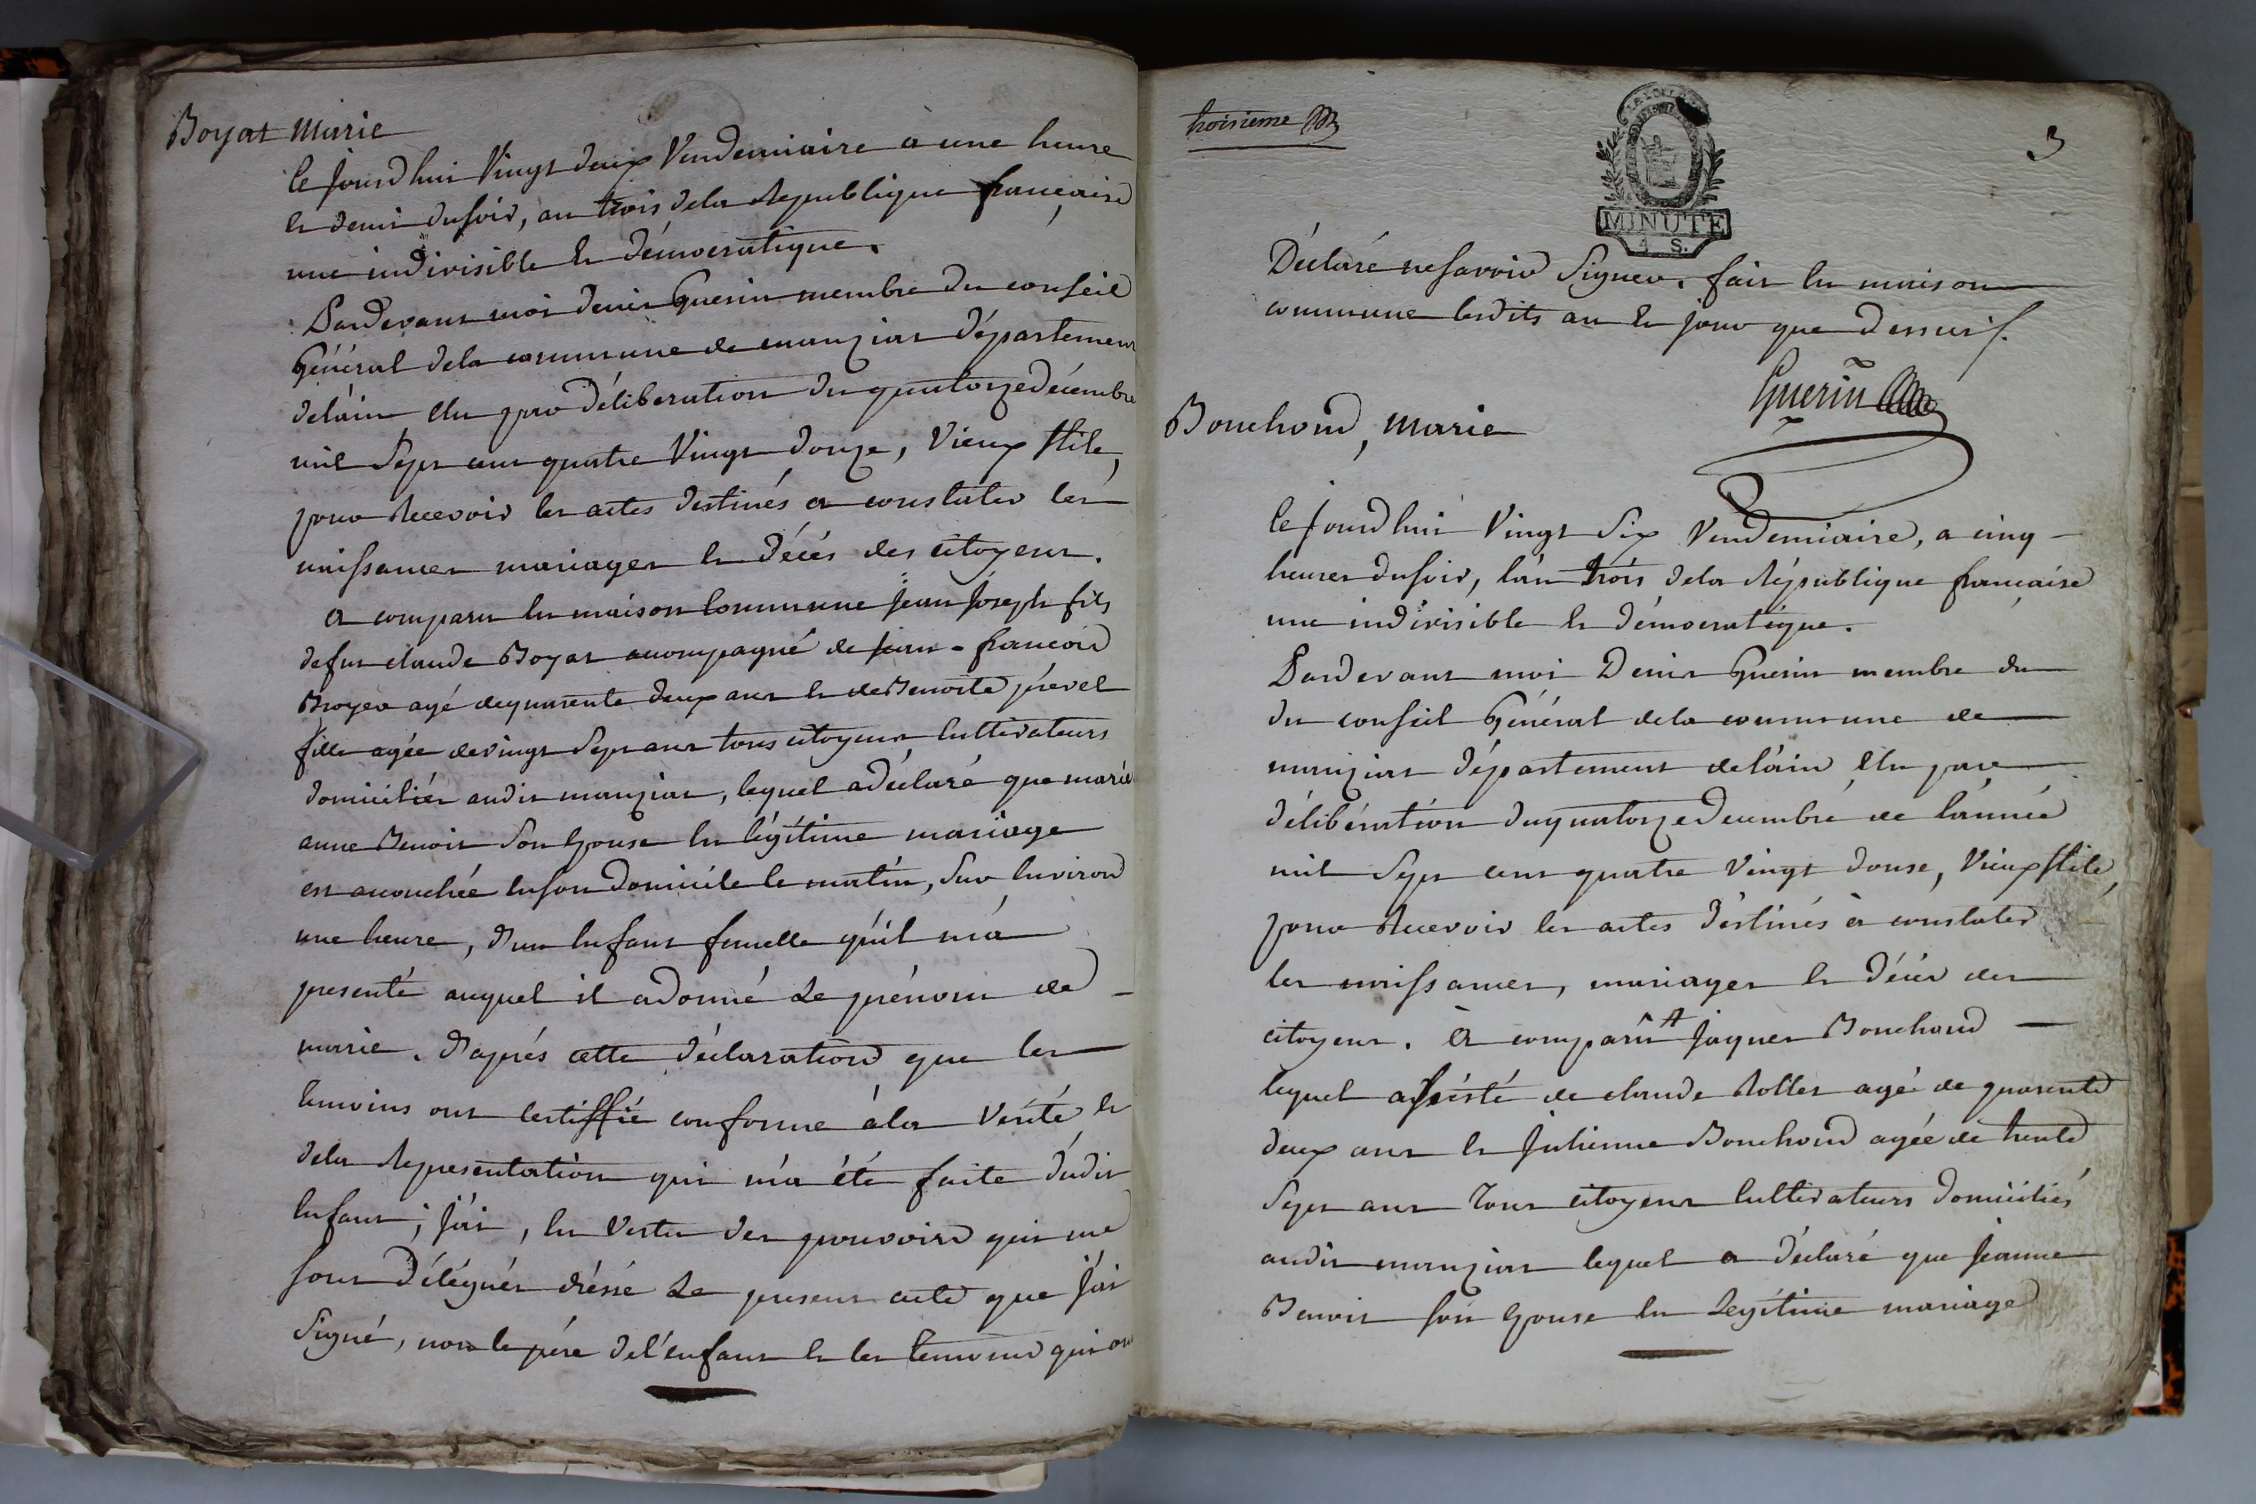 Boyat Marie
ce jourd'hui vingt deux vendemiaire a une heure
et demi du soir, an trois dela Republique française
une indivisible et démocratique.
Pardevant moi denis Guerin membre du conseil
Général dela commune de manziat département
delain élu par délibération du quatorze décembre
mil sept cent quatre vingt douze, vieux stile,
pour Recevoir les actes destinés a constater les
naissances mariages et décés des citoyens.
a comparu en maison commune jean joseph fils
defut claude Boyat acompagné de jean-françois
Broyer agé dequarente deux ans et deBenoite prevel
fille agée devingt sept ans tous citoyens cultivateurs
domiciliés audit manziat, lequel adéclaré que marie
anne Benoit son épouse en légitime mariage
est acouchée enson domicile le matin, sur environ
une heure, d'un enfant femelle qu'il m'a
presenté auquel il adonné le prénom de
marie. d'aprés cette déclaration que les
temoins ont certiffié conforme àla vérité et
dela Representation qui m'a été faite dudit
enfant; j'ai, en vertu des pouvoirs qui me
sont délégués dréssé le present acte que j'ai
signé, non le pére del'enfant et les temoins qui ont
troisieme
3
MINUTE
4 S.
Déclaré nesavoir signer. fait en maison
commune lesdits an et jour que dessus.
Guerin
Bouchoud, Marie
ce jourd'hui vingt six vendemiaire, a cinq
heures dusoir, l'an trois dela République française
une indivisible et démocratique.
Pardevant moi Denis Guerin membre du
du conseil Général dela commune de
manziat département delain élu par
délibération duquatorze decembre de l'année
mil sept cent quatre vingt douse, vieux stile,
pour Recevoir les actes déstinés à constater
les naissances, mariages et décés des
citoyens. à comparu jaques Bouchoud
lequel assisté de claude Rollet agé de quarente
deux ans et julienne Bouchoud agée de trente
sept ans tous citoyens cultivateurs domiciliés
audit manziat lequel a déclaré que jeanne
Benoit son épouse en legitime mariage